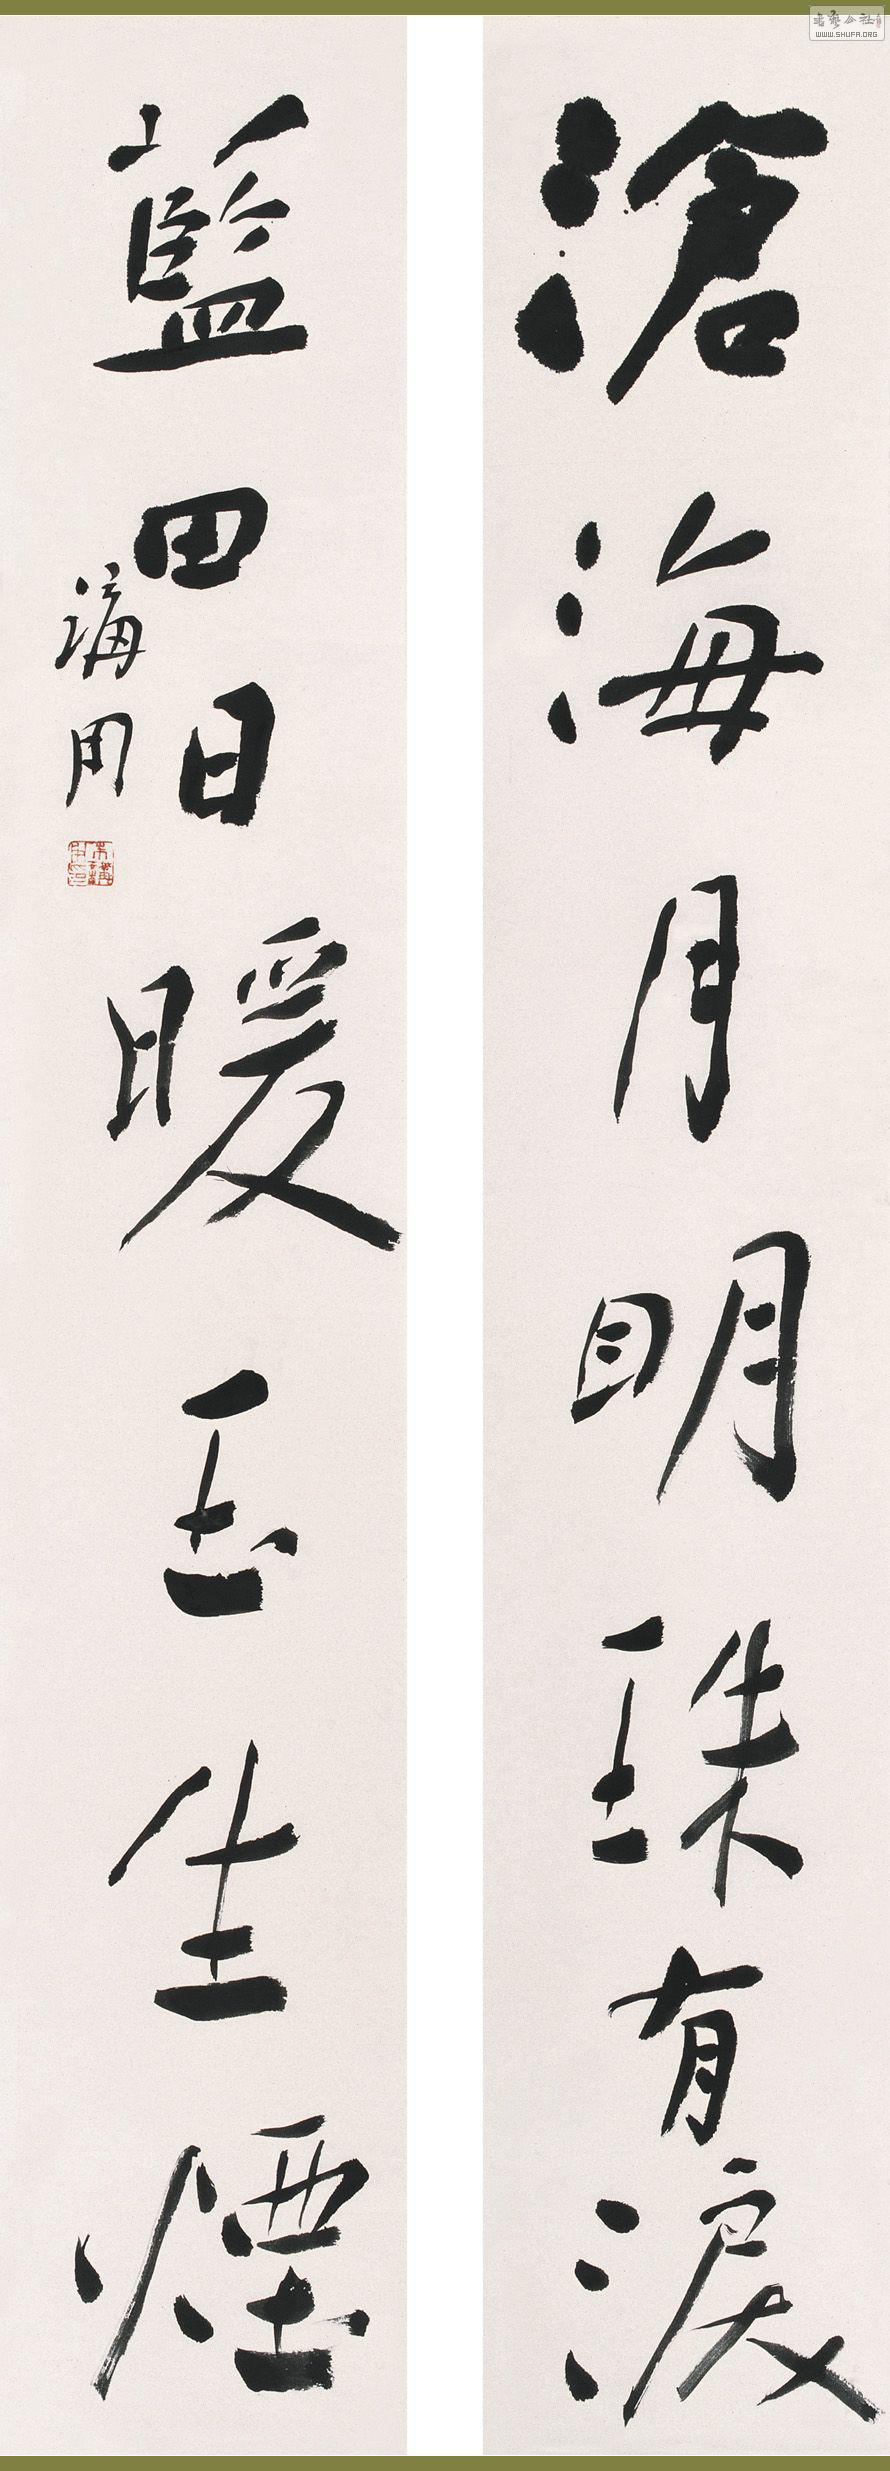 滄海月明珠有淚
藍田日暖玉生煙
海用
WWW.SHUFA.ORG